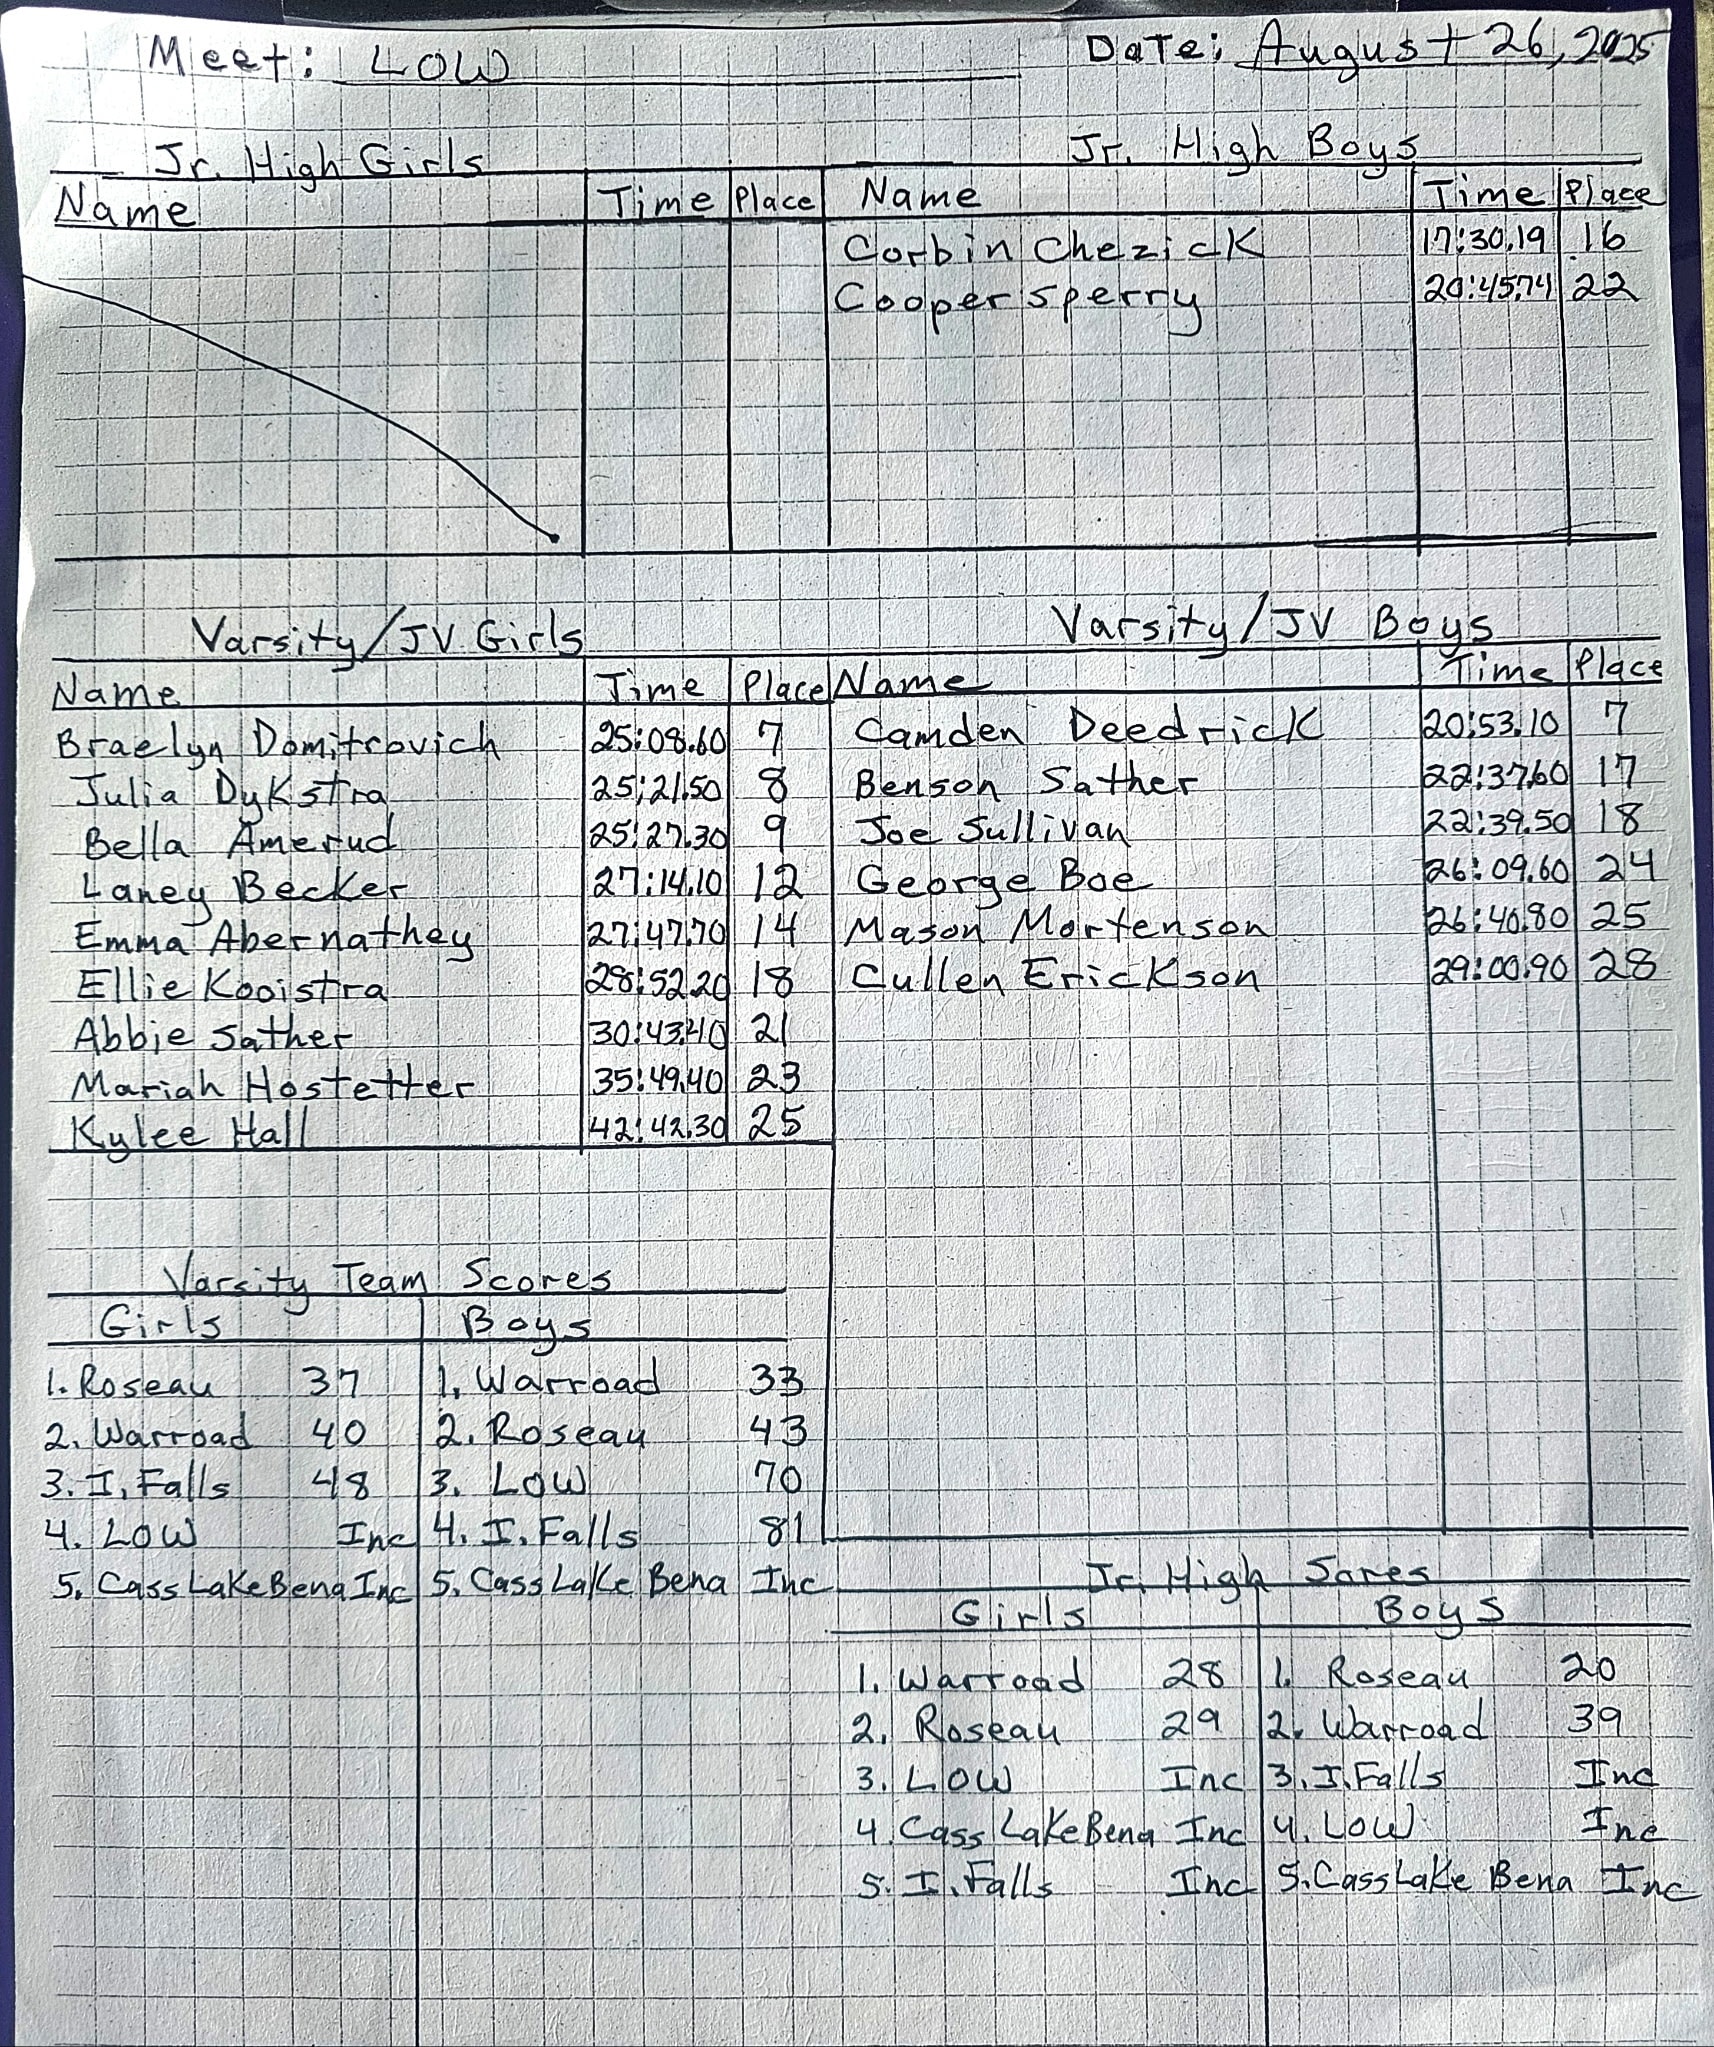 Meet: LOW Date: August 26, 2025
Jr. High Girls
Name Time Place
Jr. High Boys
Name Time Place
Corbin Chezick 17:30.19 16
Cooper Sperry 20:45.74 22
Varsity/JV Girls
Name Time Place
Braelyn Domitrovich 25:08.60 7
Julia Dykstra 25:21.50 8
Bella Amerud 25:27.30 9
Laney Becker 27:14.10 12
Emma Abernathey 27:47.70 14
Ellie Kooistra 28:52.20 18
Abbie Sather 30:43.40 21
Mariah Hostetter 35:49.40 23
Kylee Hall 42:42.30 25
Varsity/JV Boys
Name Time Place
Camden Deedrick 20:53.10 7
Benson Sather 22:37.60 17
Joe Sullivan 22:39.50 18
George Boe 26:09.60 24
Mason Mortenson 26:40.80 25
Cullen Erickson 29:00.90 28
Varsity Team Scores
Girls
1. Roseau 37
2. Warroad 40
3. I. Falls 48
4. LOW Inc
5. Cass Lake Bena Inc
Boys
1. Warroad 33
2. Roseau 43
3. LOW 70
4. I. Falls 81
5. Cass Lake Bena Inc
Jr. High Sores
Girls
1. Warroad 28
2. Roseau 29
3. LOW Inc
4. Cass Lake Bena Inc
5. I. Falls Inc
Boys
1. Roseau 20
2. Warroad 39
3. I. Falls Inc
4. LOW Inc
5. Cass Lake Bena Inc